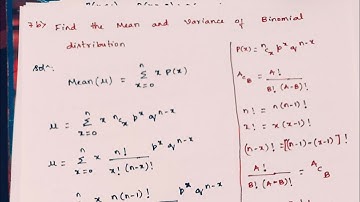 7b) Find the Mean and Variance of Binomial
distribution
Solⁿ:
Mean(μ) = Σ_{x=0}^{n} x P(x)
μ = Σ_{x=0}^{n} x n_{C_x} p^x q^{n-x}
μ = Σ_{x=0}^{n} x n!/(x! (n-x)!) p^x q^{n-x}
x n(n-1)! p^x q^{n-x}
P(x) = n_{C_x} p^x q^{n-x}
A_{C_B} = A!/(B! (A-B)!)
n! = n(n-1)!
x! = x(x-1)!
(n-x)! = [(n-1)-(x-1)]!
A!/(B! (A-B)!) = A_{C_B}